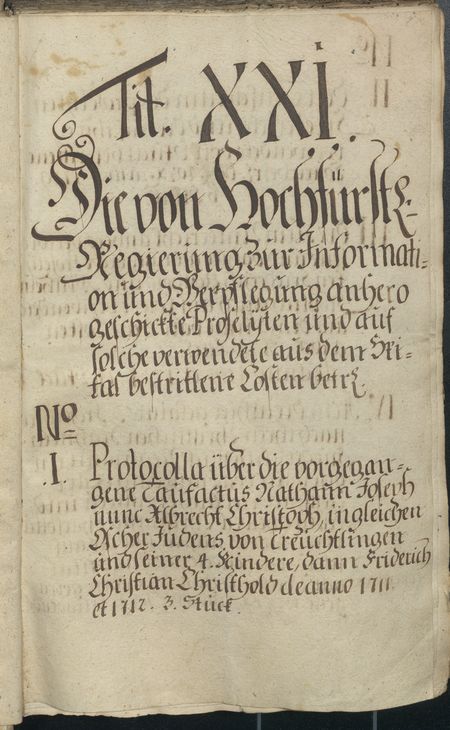 Tit. XXI.
Die von Hochfürstl.
Regierung zur Informati=
on und Verpflegung anhero
geschickte Proselyten und auf
solche verwendete aus dem Hei=
tal bestrittene Costen betr.
No
.1. Protocolla über die vorgegan=
gene Taufactus Nathann Joseph
nunc Albrecht Christoph, ingleichen
Ascher Judens von Treuchtlingen
und seiner 4. Kindere, dann Friderich
Christian Christhold de anno 1711.
et 1712. 3. Stück.